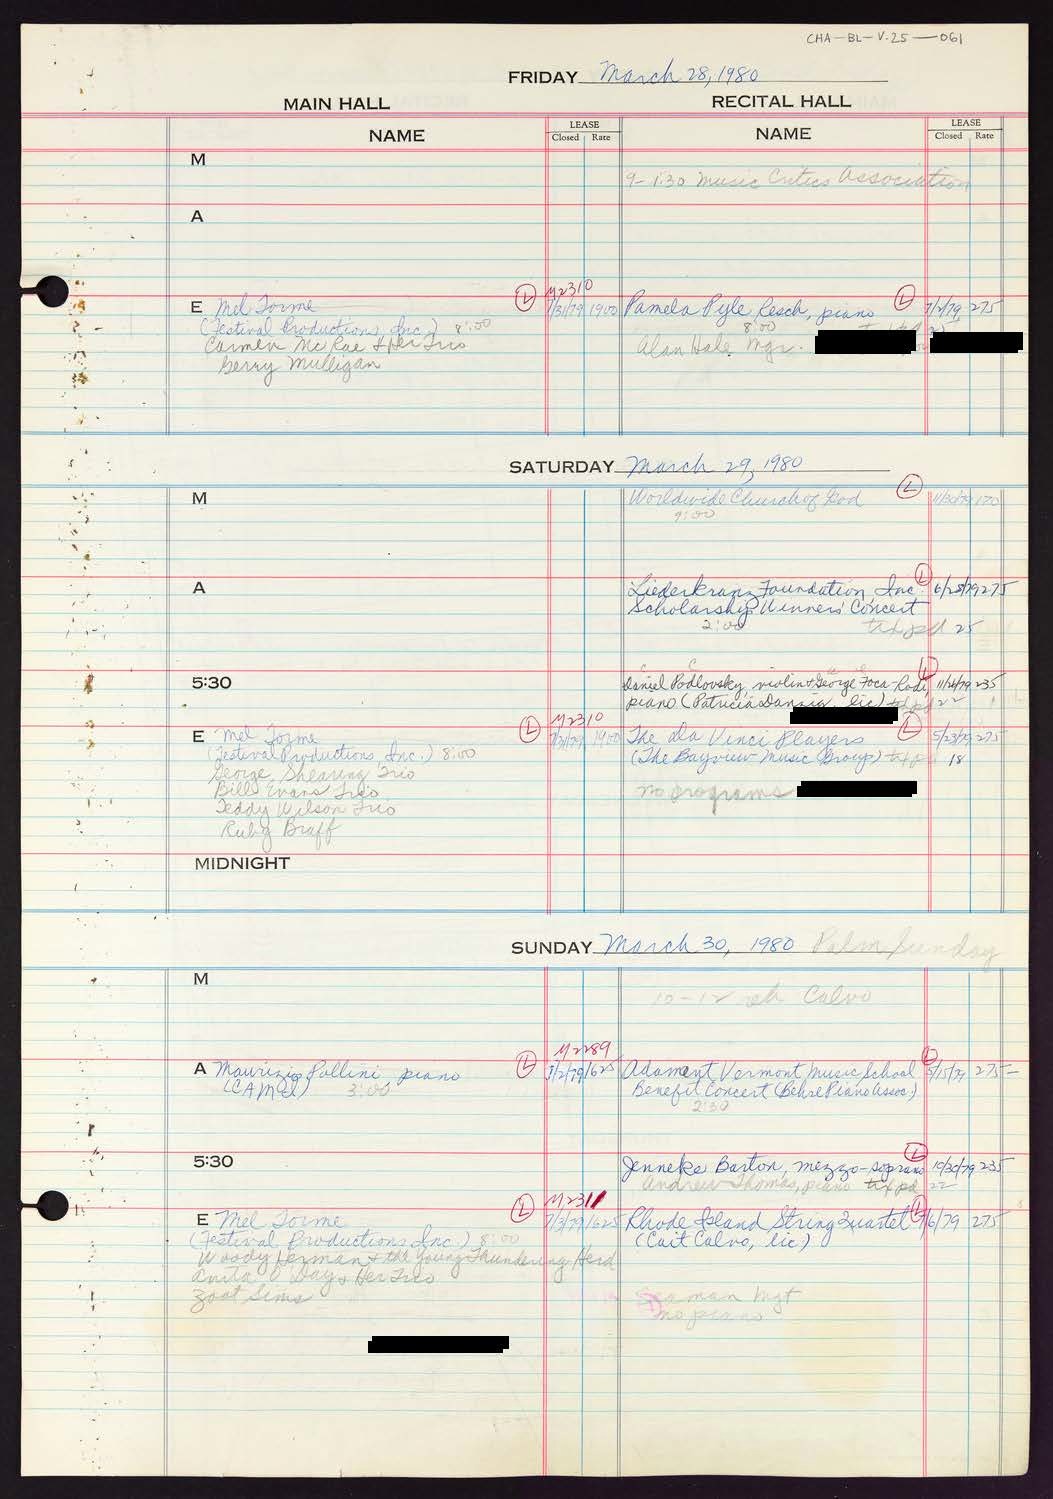 CHA-BL-V.25-061
FRIDAY March 28, 1980
MAIN HALL
RECITAL HALL
NAME
LEASE
Closed Rate
NAME
LEASE
Closed Rate
M
9-1:30 Music Critics Association
A
E Mel Torme
(Festival Productions, Inc.) 8:00
Carmen McRae & Her Trio
Gerry Mulligan
L
M2310
7/3/79 1900
Pamela Pyle Resch, piano
8:00
Alan Hale Mgr.
L
7/2/79 275
25
SATURDAY March 29, 1980
M
Worldwide Church of God
9:00
L
11/30/79 170
A
Liederkranz Foundation, Inc.
Scholarship Winners' Concert
2:00
tx pd 25
L
6/28/79 275
5:30
Daniel Podlovsky, violin & George Foca-Rodi,
piano (Patricia Danzig, lic) tx pd 22
L
11/26/79 235
E Mel Torme
(Festival Productions Inc.) 8:00
George Shearing Trio
Bill Evans Trio
Teddy Wilson Trio
Ruby Braff
L
M2310
7/3/79 1900
The da Vinci Players
(The Bayview Music Group) tx pd 18
no programs
L
5/23/79 275
MIDNIGHT
SUNDAY March 30, 1980 Palm Sunday
M
10-12 reh Calvo
A Maurizio Pollini piano
(CAMI) 3:00
L
M2289
3/2/79 1625
Adamant Vermont Music School
Benefit Concert (Behre Piano Assoc)
2:30
L
5/15/79 275-
5:30
Jenneke Barton, mezzo-soprano
Andrew Thomas, piano tx pd 22
L
10/30/79 235
E Mel Torme
(Festival Productions Inc.) 8:00
Woody Herman & the Young Thundering Herd
Anita O'Day & Her Trio
Zoot Sims
L
M2311
7/3/79 1625
Rhode Island String Quartet
(Cait Calvo, lic)
L
7/6/79 275
Mgt
no piano